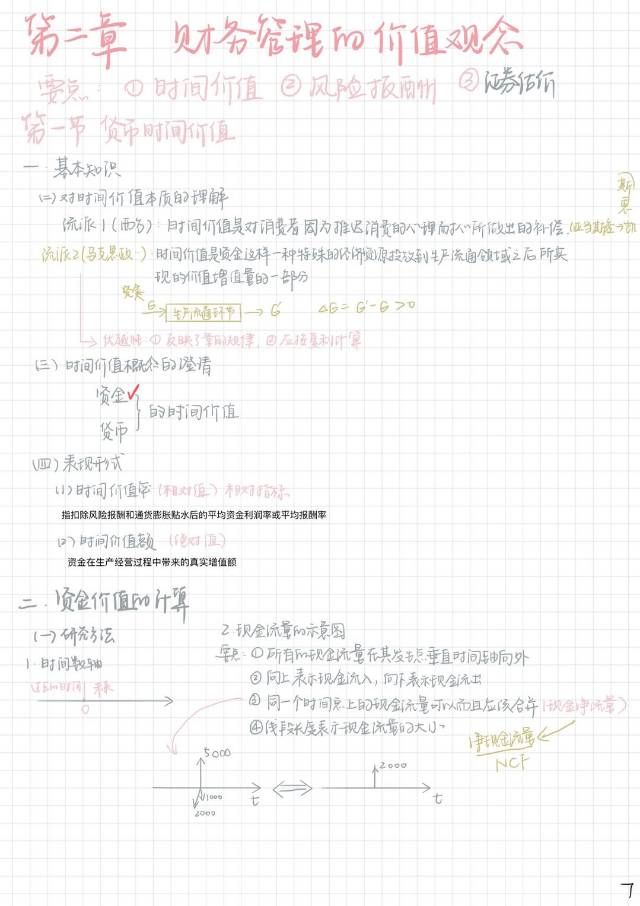 第二章 财务管理的价值观念
要点：① 时间价值 ② 风险报酬州 ③ 证券估价
第一节 货币时间价值
一. 基本知识
(二) 对时间价值本质的理解
流派1(西方)：时间价值是对消费者因为推迟消费的心理耐心所做出的补偿.
斯
恩
流派2(马克思 )：时间价值是资金这样一种特殊的经济资源投放到生产流通领域之后所实
现的价值增值量的一部分
G → 生产流通环节 → G' ΔG = G' - G > 0
优越性 ① 反映了量的规律, ② 应按复利计算
(三) 时间价值概念的澄清
资金✓
货币
的时间价值
(四) 表现形式
(1) 时间价值率 (相对值) 相对指标
指扣除风险报酬和通货膨胀贴水后的平均资金利润率或平均报酬率
(2) 时间价值额 (绝对值)
资金在生产经营过程中带来的真实增值额
二. 资金价值的计算
(一) 研究方法
1. 时间数轴
过去的时间 未来
0
2. 现金流量的示意图
要点：① 所有的现金流量在其发生点垂直时间轴向外
② 向上表示现金流入，向下表示现金流出
③ 同一个时间点上的现金流量可以而且应该合并 (现金净流量)
④ 线段长度表示现金流量的大小
净现金流量
NCF
5000
1000
2000
t
2000
t
7